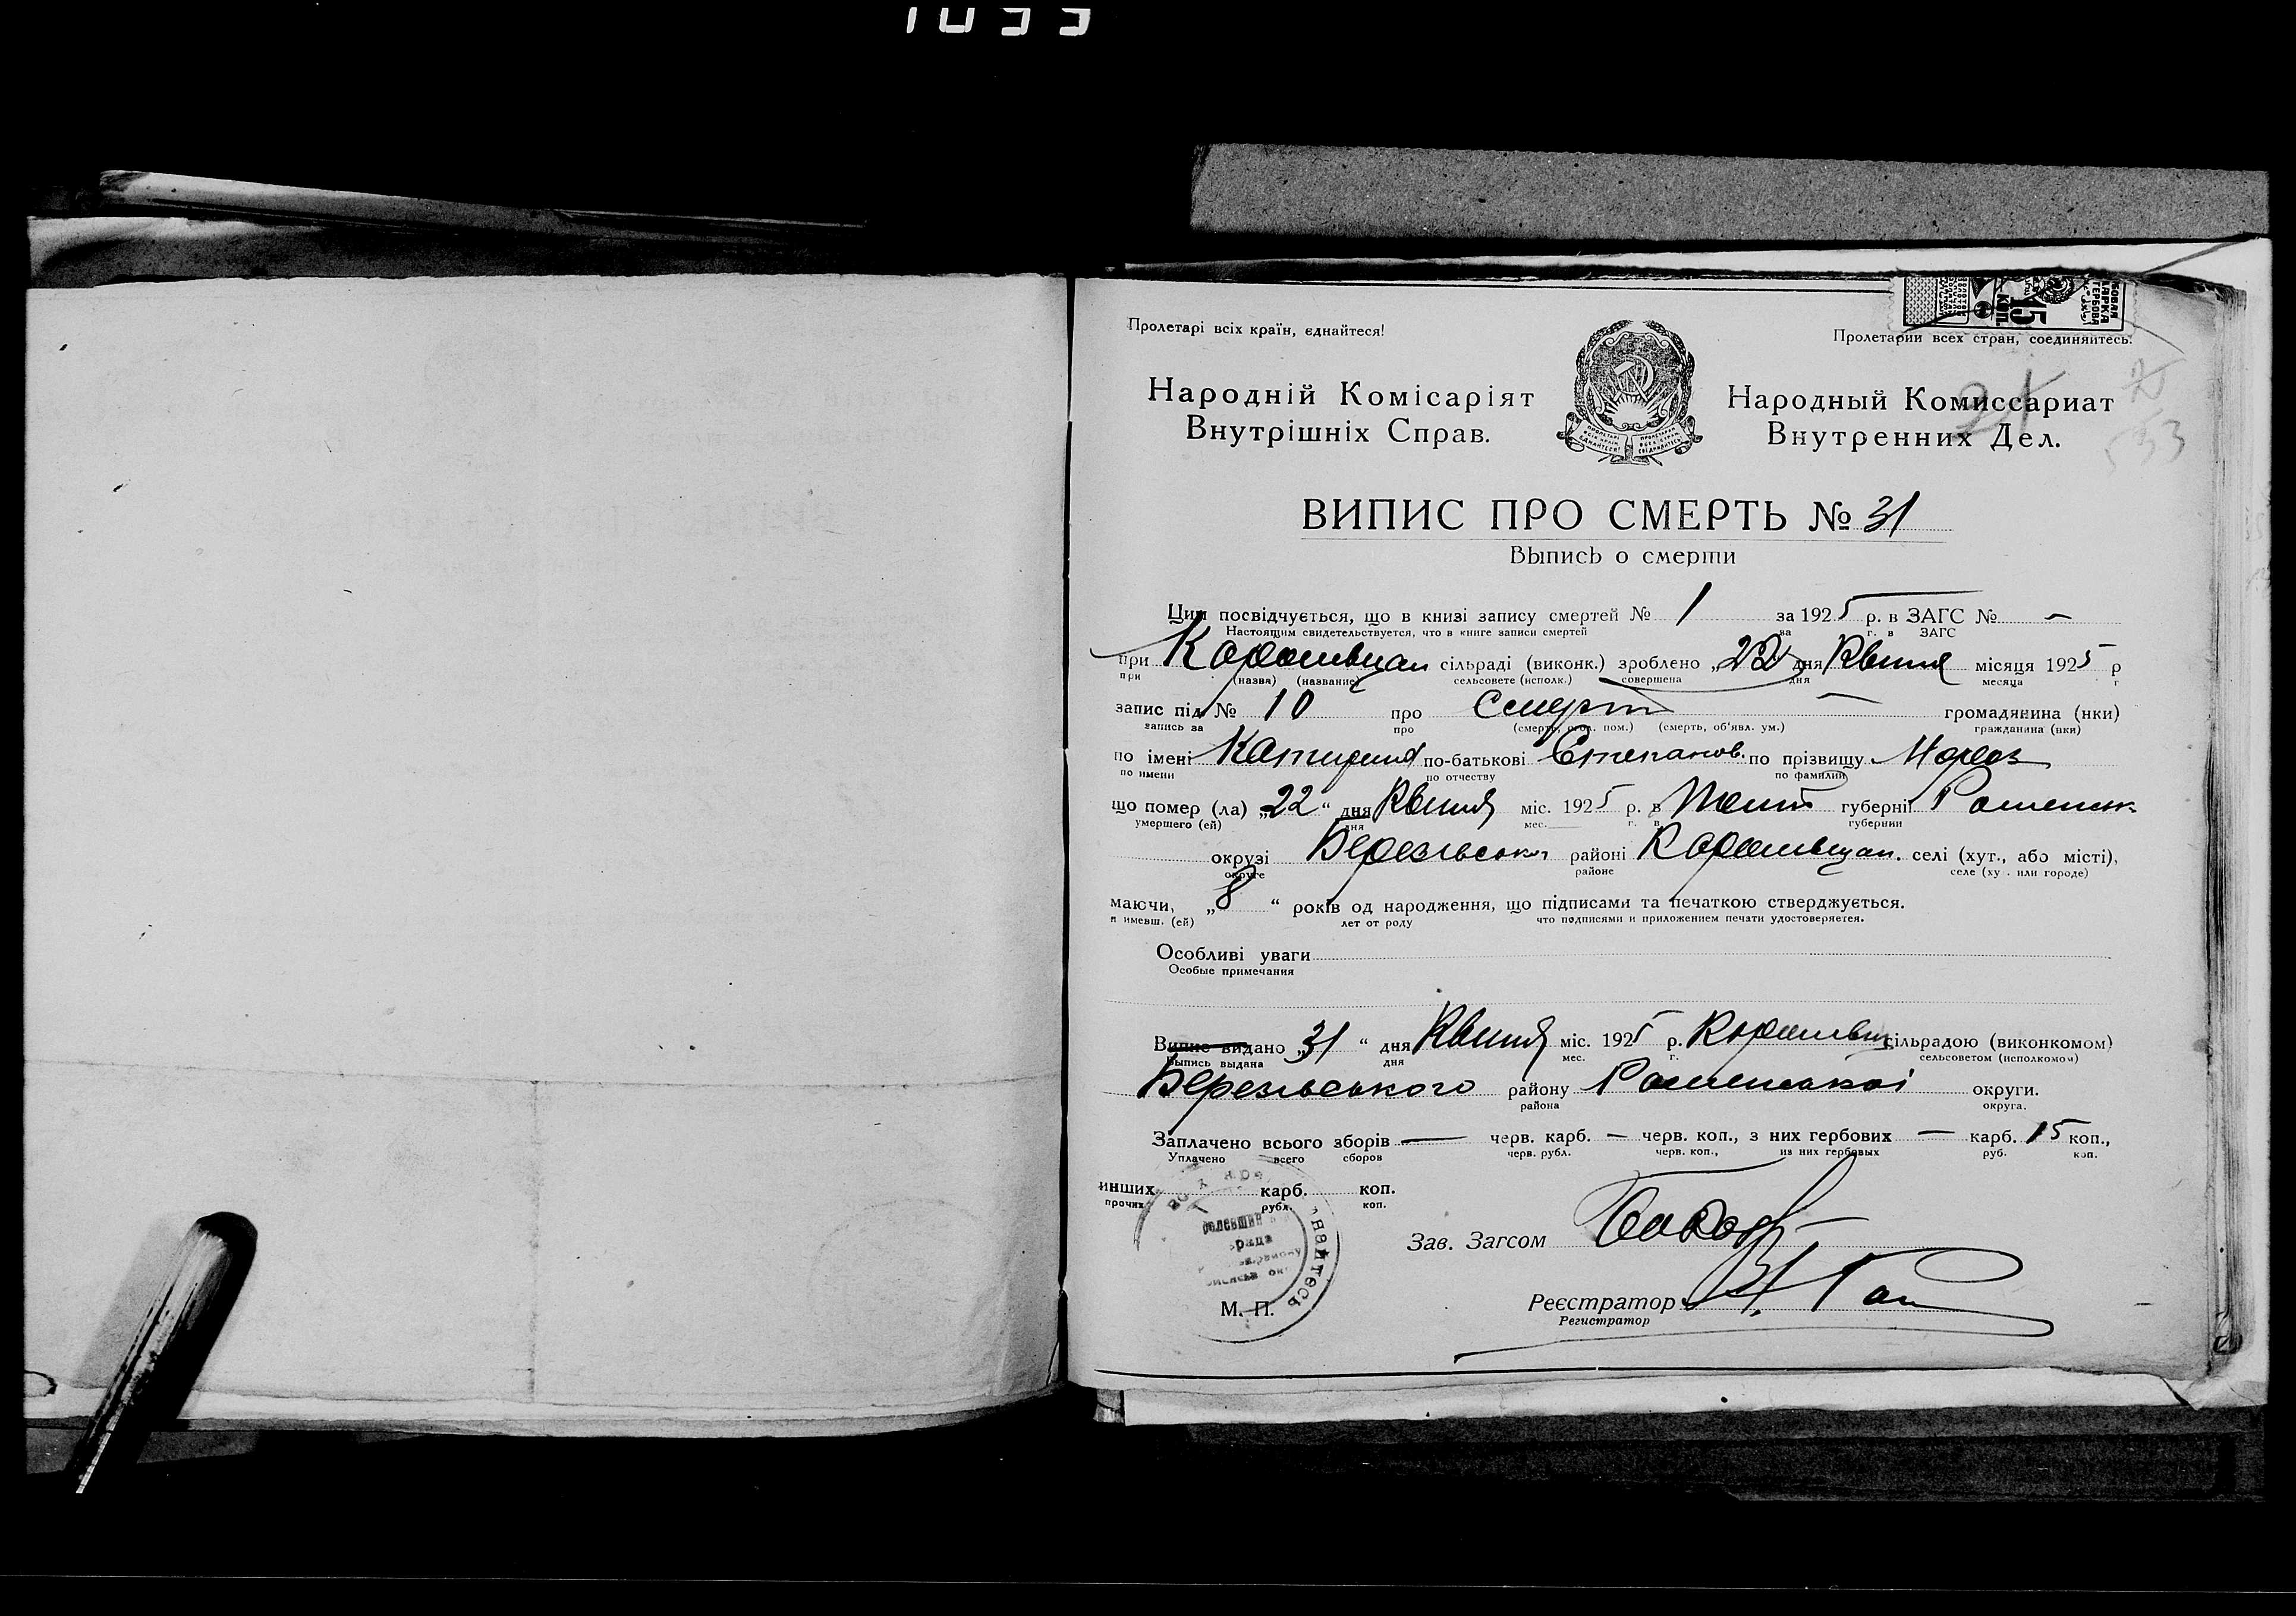 Пролетарі всіх країн, єднайтеся!
Пролетарии всех стран, соединяйтесь!
15
КОП.
Народній Комісаріят
Внутрішніх Справ.
Народный Комиссариат
Внутренних Дел.
53
ВИПИС ПРО СМЕРТЬ № 31
Выпись о смерти
Цим посвідчується, що в книзі запису смертей № 1 за 1925 р. в ЗАГС № –
Настоящим свидетельствуется, что в книге записи смертей за г. в ЗАГС
при сільраді (виконк.) зроблено „22" дня Квітня місяця 1925 р
при (назва) (название) сельсовете (исполк.) совершена дня месяца г
запис під № 10 про Смерть – громадянина (нки)
запись за про (смерть, огол. пом.) (смерть, об'явл. ум.) гражданина (нки)
по імені Катерина по-батькові Степанов. по прізвищу Мороз
по имени по отчеству по фамилии
що померг (ла) „22" дня Квітня міс. 1925 р. в Полт губернії Роменськ
умершего (ей) дня мес. г. в губернии
окрузі Березівськ районі селі (хут., або місті),
округе районе селе (ху . или городе)
маючи, „8" років од народження, що підписами та печаткою стверджується.
и имевш. (ей) лет от роду что подписями и приложением печати удостоверяется.
Особливі уваги
Особые примечания
Випис видано „31" дня Квітня міс. 1925 р. сільрадою (виконкомом)
Выпись выдана дня мес. г. сельсоветом (исполкомом)
Березівського району Роменської округи.
района округа.
Заплачено всього зборів – черв. карб. – черв. коп., з них гербових – карб. 15 коп.,
Уплачено всего сборов черв. рубл. черв. коп., из них гербовых руб. коп.
инших карб. коп.
прочих рубл. коп.
Зав. Загсом
М. П.
Реєстратор
Регистратор